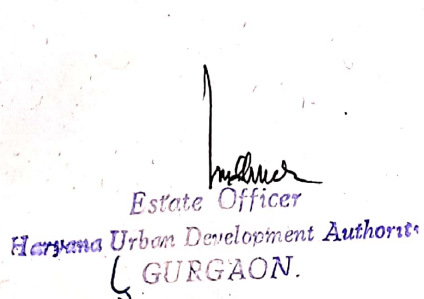 Estate Officer
Haryana Urban Development Authority
GURGAON.